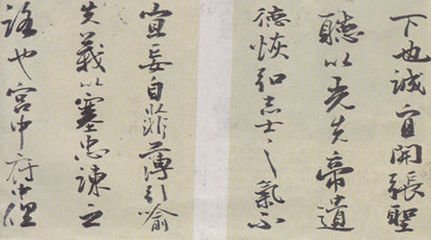 下也誠宜開張聖
聽以光先帝遺
德恢弘志士之氣不
宜妄自菲薄引喻
失義以塞忠諫之
路也宮中府中俱